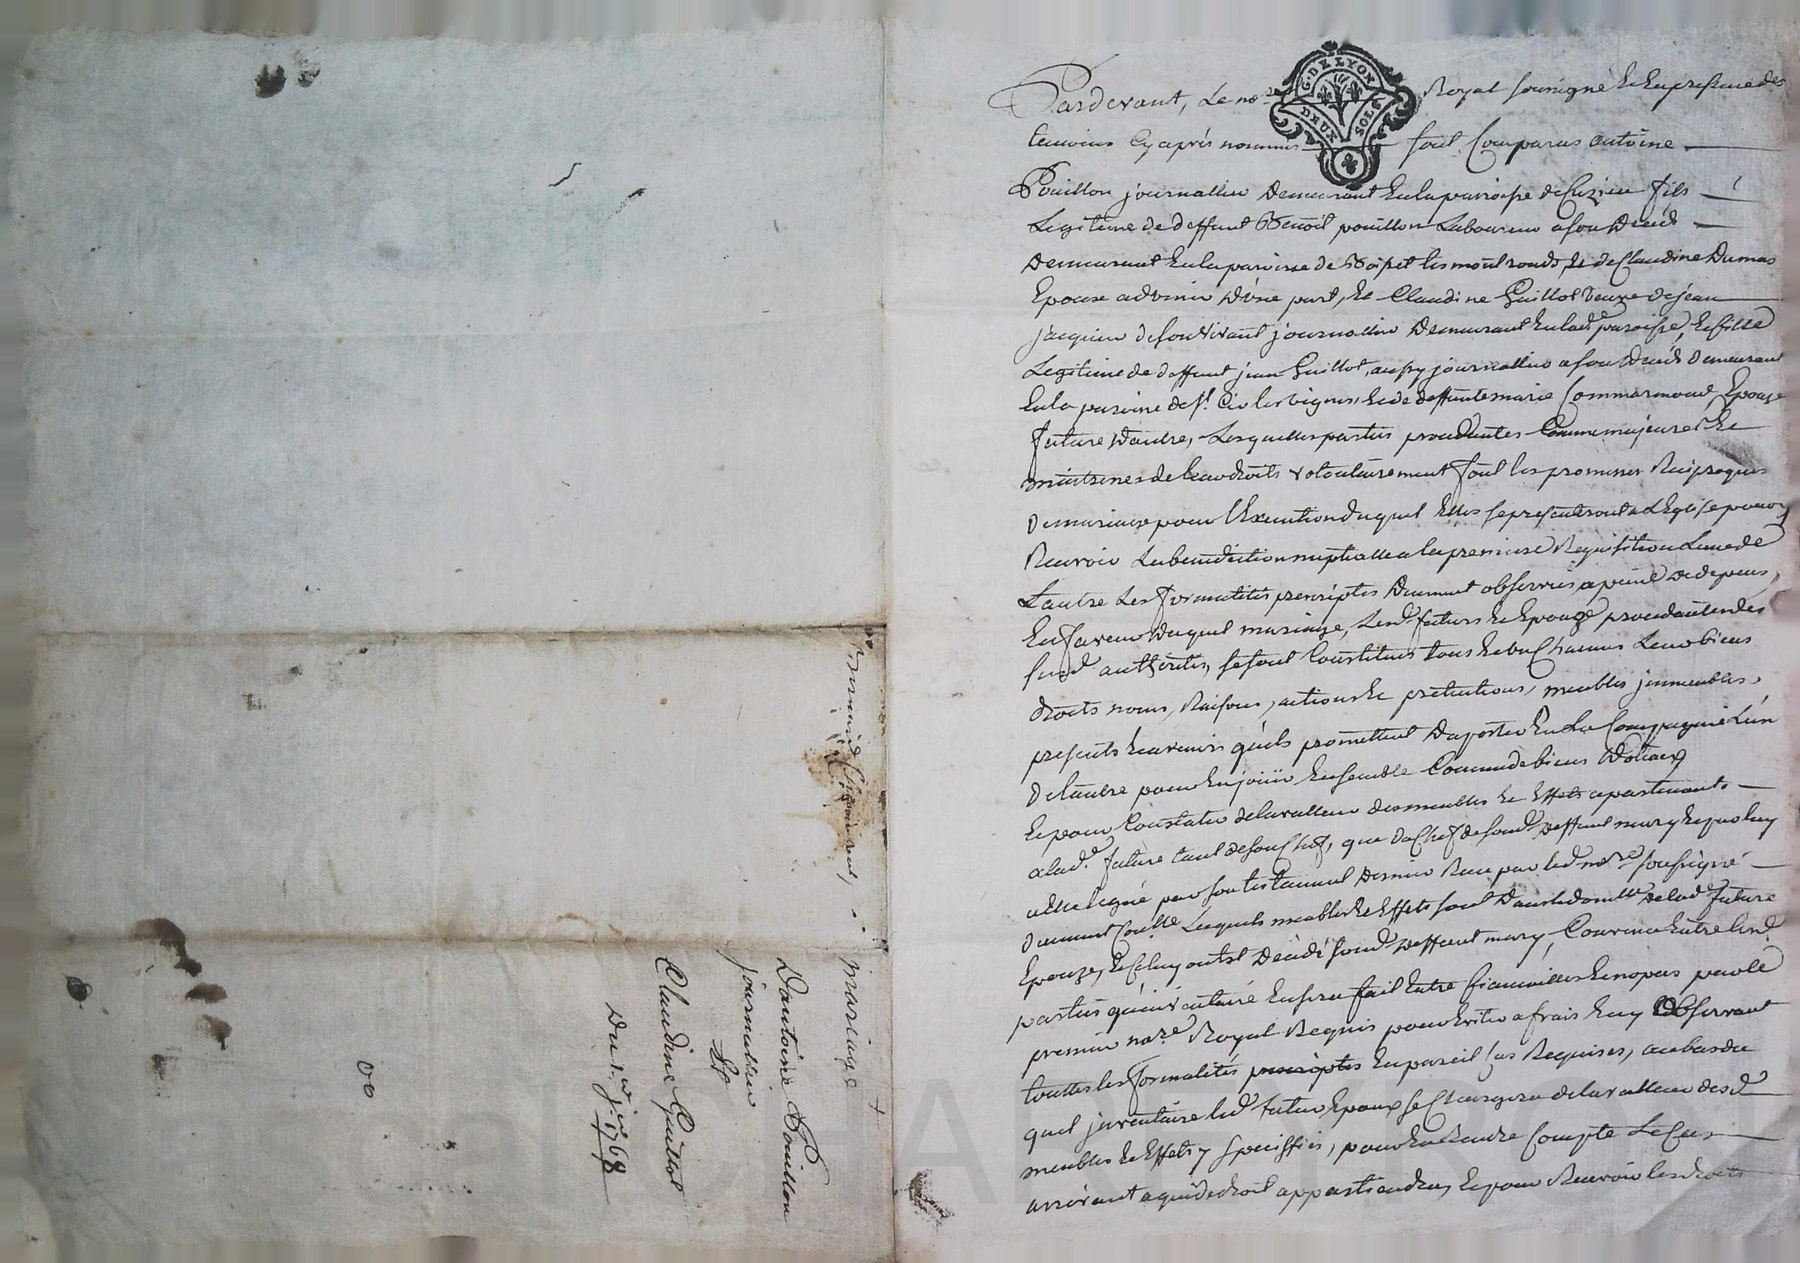 G. DE LYON
DEUX SOLS
Pardevant, Le no.re Royal soussigné Et En presence des
temoins Cy aprés nommés sont Comparus antoine
Pouillon journallier Demeurant En la paroisse de Cuzieu fils
Legitime de deffunt Benoit pouillon Laboureur a son Décés
Demeurant En la paroisse de Boisset les montronds, Et de Claudine Dumas
Epoux advenir D'une part, Et Claudine Guillot Veuve de jean
jacquier de son vivant journallier Demeurant En lad.e paroisse, Et fille
Legitime de deffunt jean Guillot, aussy journallier a son Décés Demeurant
En la paroisse de St. les vignes, Et de deffunte marie Commarmond, Epouze
future D'autre, Lesquelles parties procedantes Comme majeures Et
maitresses de leurs droits volontairement sont les promesses Reciproques
De mariage pour l'Execution duquel Elles se presenteront a L'Eglise pour y
Recevoir La benediction nuptialle a la premiere Requisition L'une de
L'autre Les formalités prescriptes Duement observées a peine de depens,
En faveur Duquel mariage, Lesd. futurs Et Epouze procedants des
susd. authorités, se sont Constitués tous Et un Chacuns Leurs biens
droits noms, Raisons, actions Et pretentions, meubles jmmeubles,
presents Et avenir qu'ils promettent D'aporter En La Compagnie L'un
De L'autre pour En jouir Ensemble Comme de biens Dotaux,
Et pour Constater de la valleur des meubles Et Effets apartenants
a lad.e future tant de son Chef, que du Chef de sond. deffunt mary Et que luy
a Eté legué par son testament Dernier Reçu par led. no.re soussigné
Duement Con.llé Lesquels meubles Et Effets sont Dans le domi.lle de lad.e future
Epouze, Et Celuy ou Est Decedé sond. deffunt mary, Convenu Entre lesd.
parties qu'inventaire En sera fait Entre fiancailles Et nopces par le
premier no.re Royal Requis pour Eviter a frais En y Observant
touttes les formalités prescriptes En pareil Cas Requises, au bas du
quel jnventaire led. futur Epoux se Chargera de la valleur desd.
meubles Et Effets y specifiés, pour En Rendre Compte Le Cas
arrivant a qui de droit appartiendra, Et pour Recevoir les droits
mariage
D'antoine Pouillon
journallier
Et
Claudine Guillot
Du 1.er j.er 1768